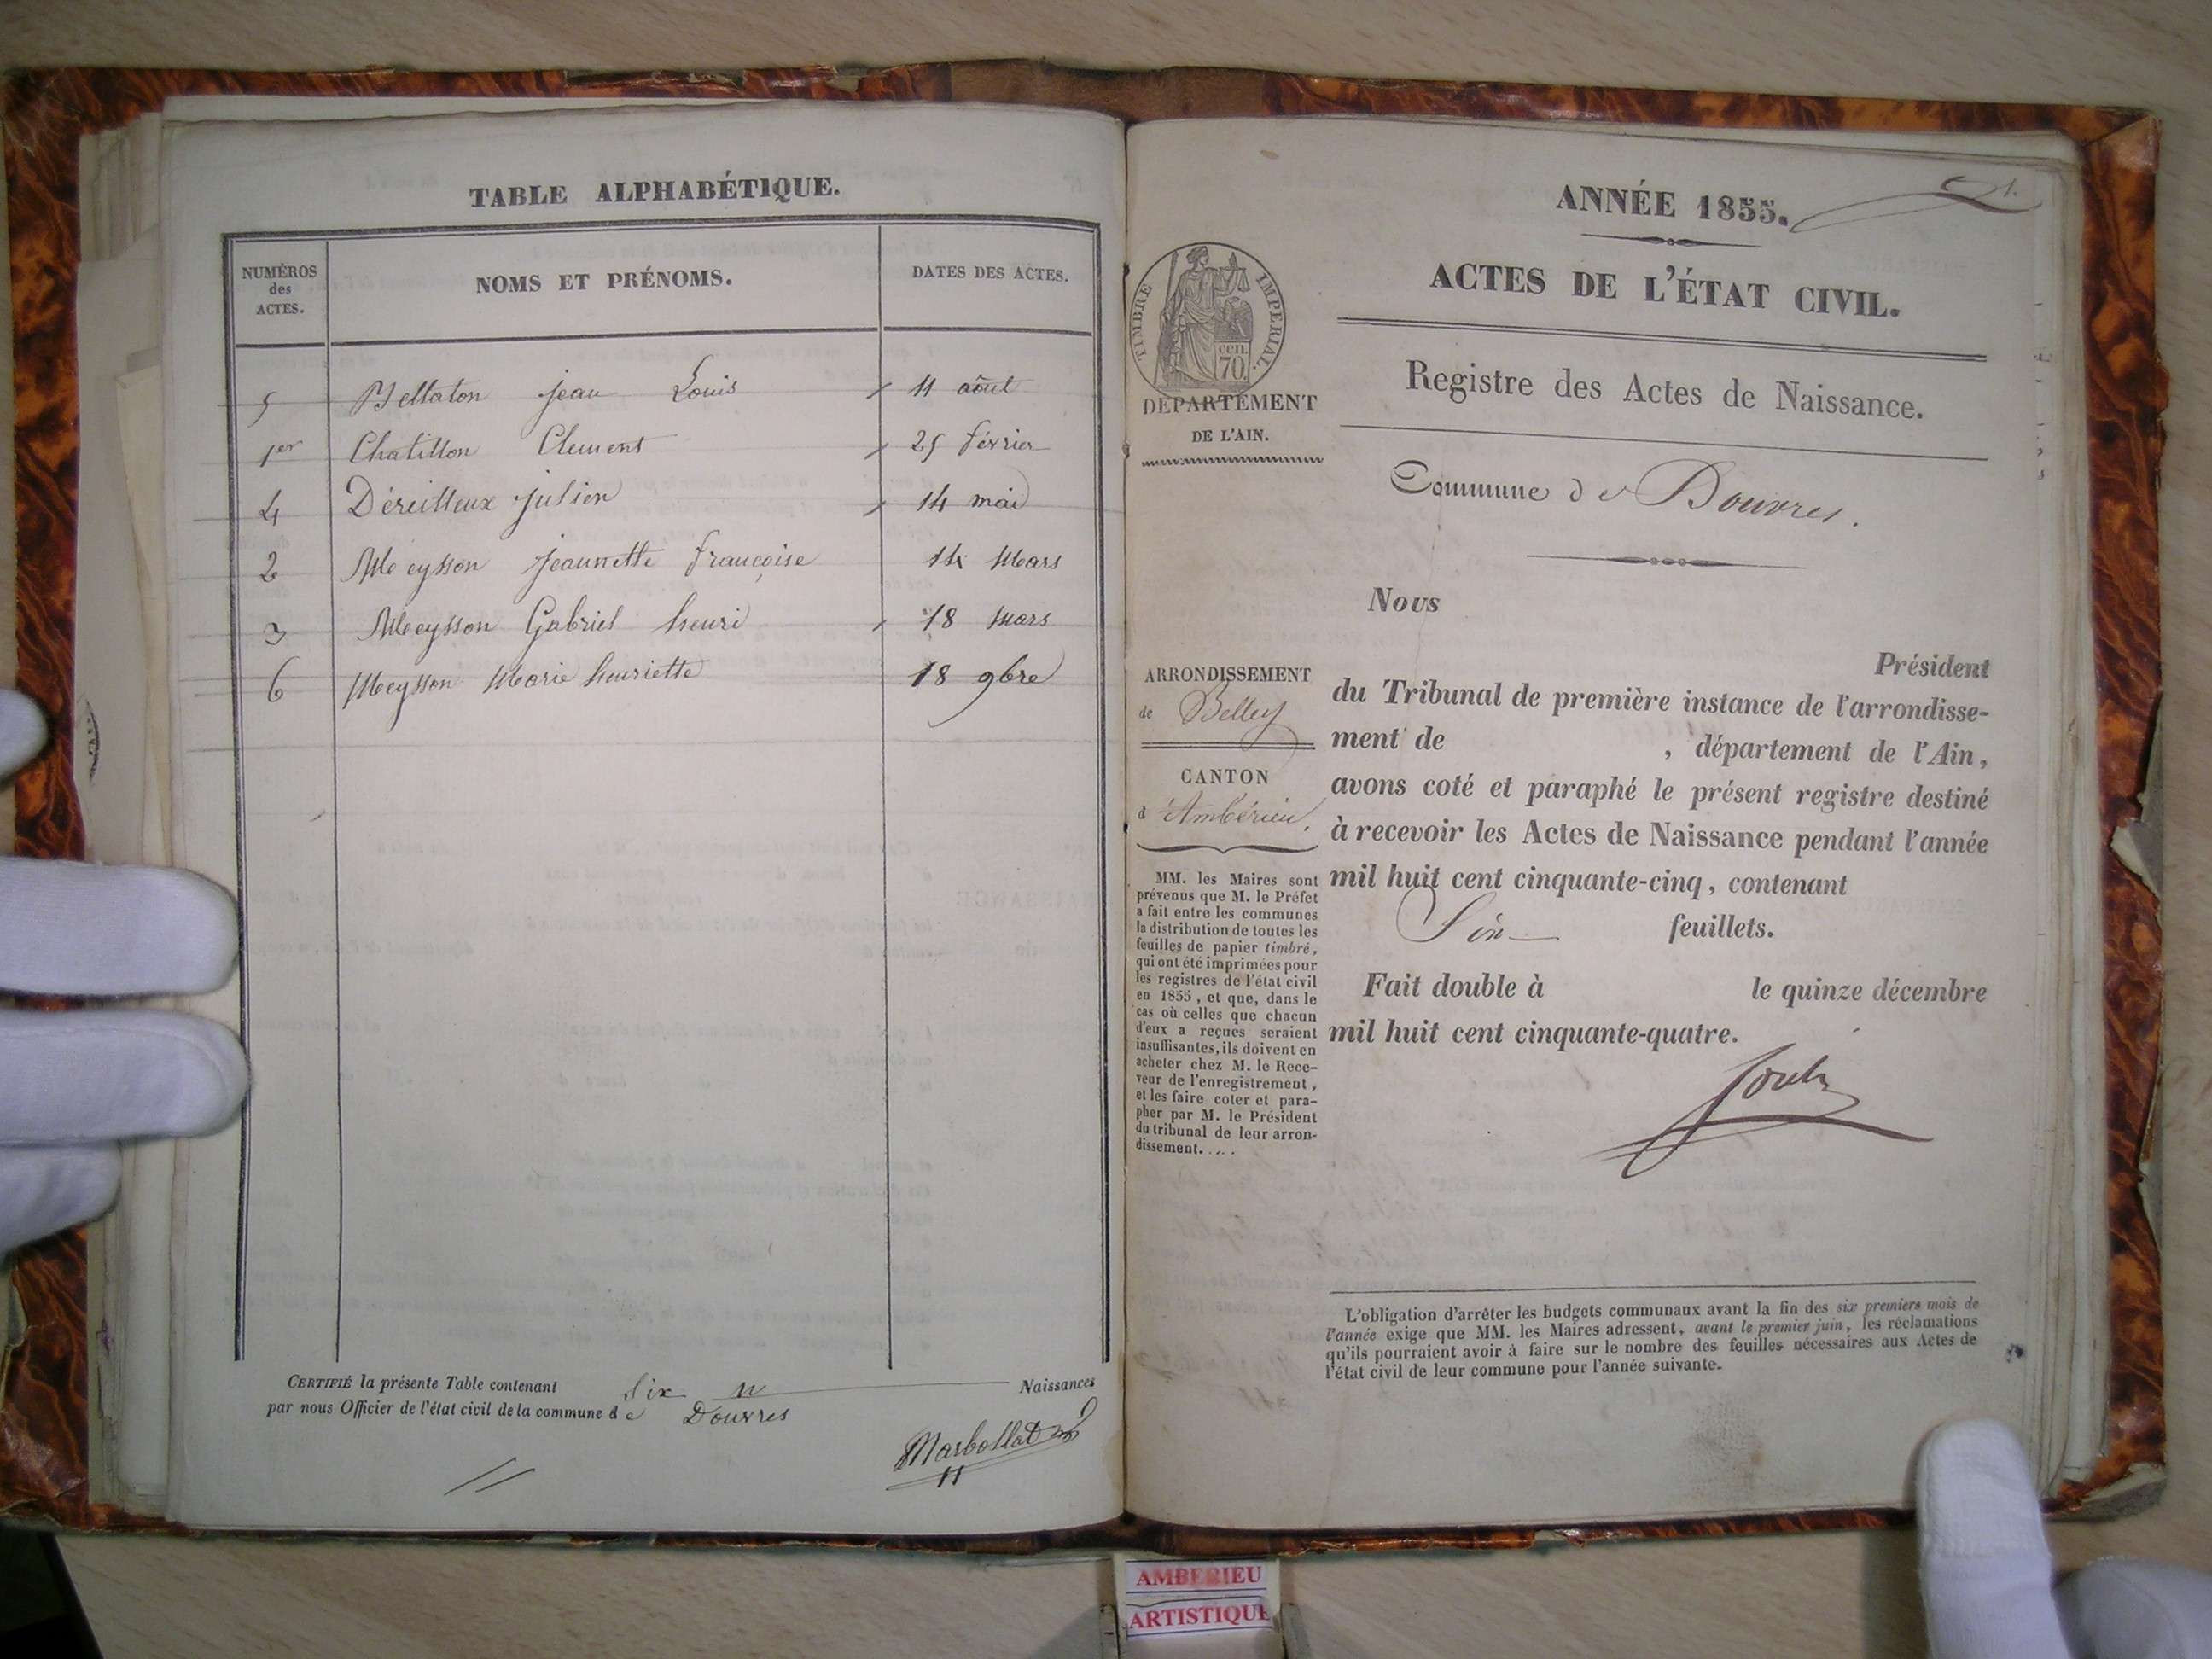 TABLE ALPHABÉTIQUE.
NUMÉROS
des
ACTES.
NOMS ET PRÉNOMS.
DATES DES ACTES.
5 Bellaton jean Louis 11 août
1er Chatillon Clement 25 février
4 Déreilleux julien 14 mai
2 Meysson Jeannette francoise 14 Mars
3 Meysson Gabriel henri 18 mars
6 Meysson Marie henriette 18 9bre
CERTIFIÉ la présente Table contenant six Naissances
par nous Officier de l'état civil de la commune de Douvres
Marbollat
ANNÉE 1855.
1.
ACTES DE L'ÉTAT CIVIL.
TIMBRE IMPERIAL.
cen.
70.
DÉPARTEMENT
DE L'AIN.
Registre des Actes de Naissance.
Commune de Douvres.
Nous
Président
du Tribunal de première instance de l'arrondisse-
ment de , département de l'Ain,
avons coté et paraphé le présent registre destiné
à recevoir les Actes de Naissance pendant l'année
mil huit cent cinquante-cinq, contenant
Six feuillets.
Fait double à le quinze décembre
mil huit cent cinquante-quatre.
ARRONDISSEMENT
de Belley
CANTON
d'Ambérieu.
MM. les Maires sont
prévenus que M. le Préfet
a fait entre les communes
la distribution de toutes les
feuilles de papier timbré,
qui ont été imprimées pour
les registres de l'état civil
en 1855, et que, dans le
cas où celles que chacun
d'eux a reçues seraient
insuffisantes, ils doivent en
acheter chez M. le Rece-
veur de l'enregistrement,
et les faire coter et para-
pher par M. le Président
du tribunal de leur arron-
dissement.....
L'obligation d'arrêter les budgets communaux avant la fin des six premiers mois de
l'année exige que MM. les Maires adressent, avant le premier juin, les réclamations
qu'ils pourraient avoir à faire sur le nombre des feuilles nécessaires aux Actes de
l'état civil de leur commune pour l'année suivante.
AMBERIEU
ARTISTIQUE